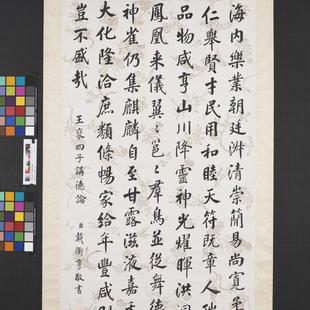 海內樂業朝廷淑清崇簡易尚寬柔
仁舉賢才民用和睦天符既章人瑞
品物咸亨山川降靈神光耀暉洪洞
鳳凰來儀翼翼邕邕羣鳥並從舞德
神雀仍集麒麟自至甘露滋液嘉禾
大化隆洽庶類條暢家給年豐咸則
豈不盛哉
王褒四子講德論
臣戴衢亨敬書